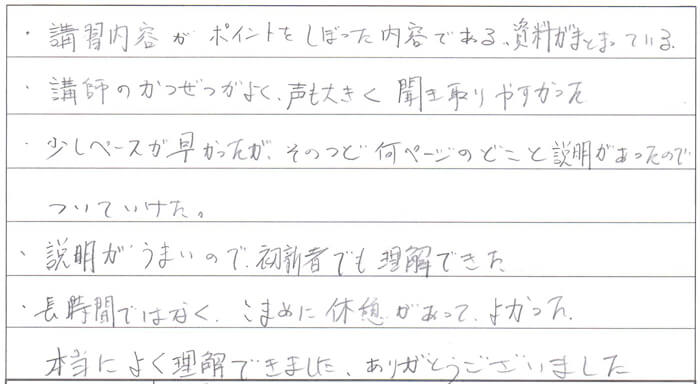 ・講習内容がポイントをしぼった内容である、資料がまとまっている。
・講師のかつぜつがよく、声も大きく聞き取りやすかった
・少しペースが早かったが、そのつど何ページのどこと説明があったので
ついていけた。
・説明がうまいので、初新者でも理解できた
・長時間ではなく、こまめに休憩があって、よかった。
本当によく理解できました、ありがとうございました